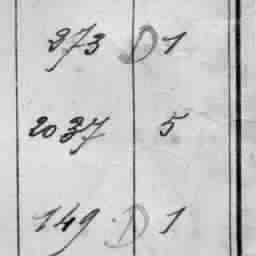 373 D 1
2037 5
149 D 1